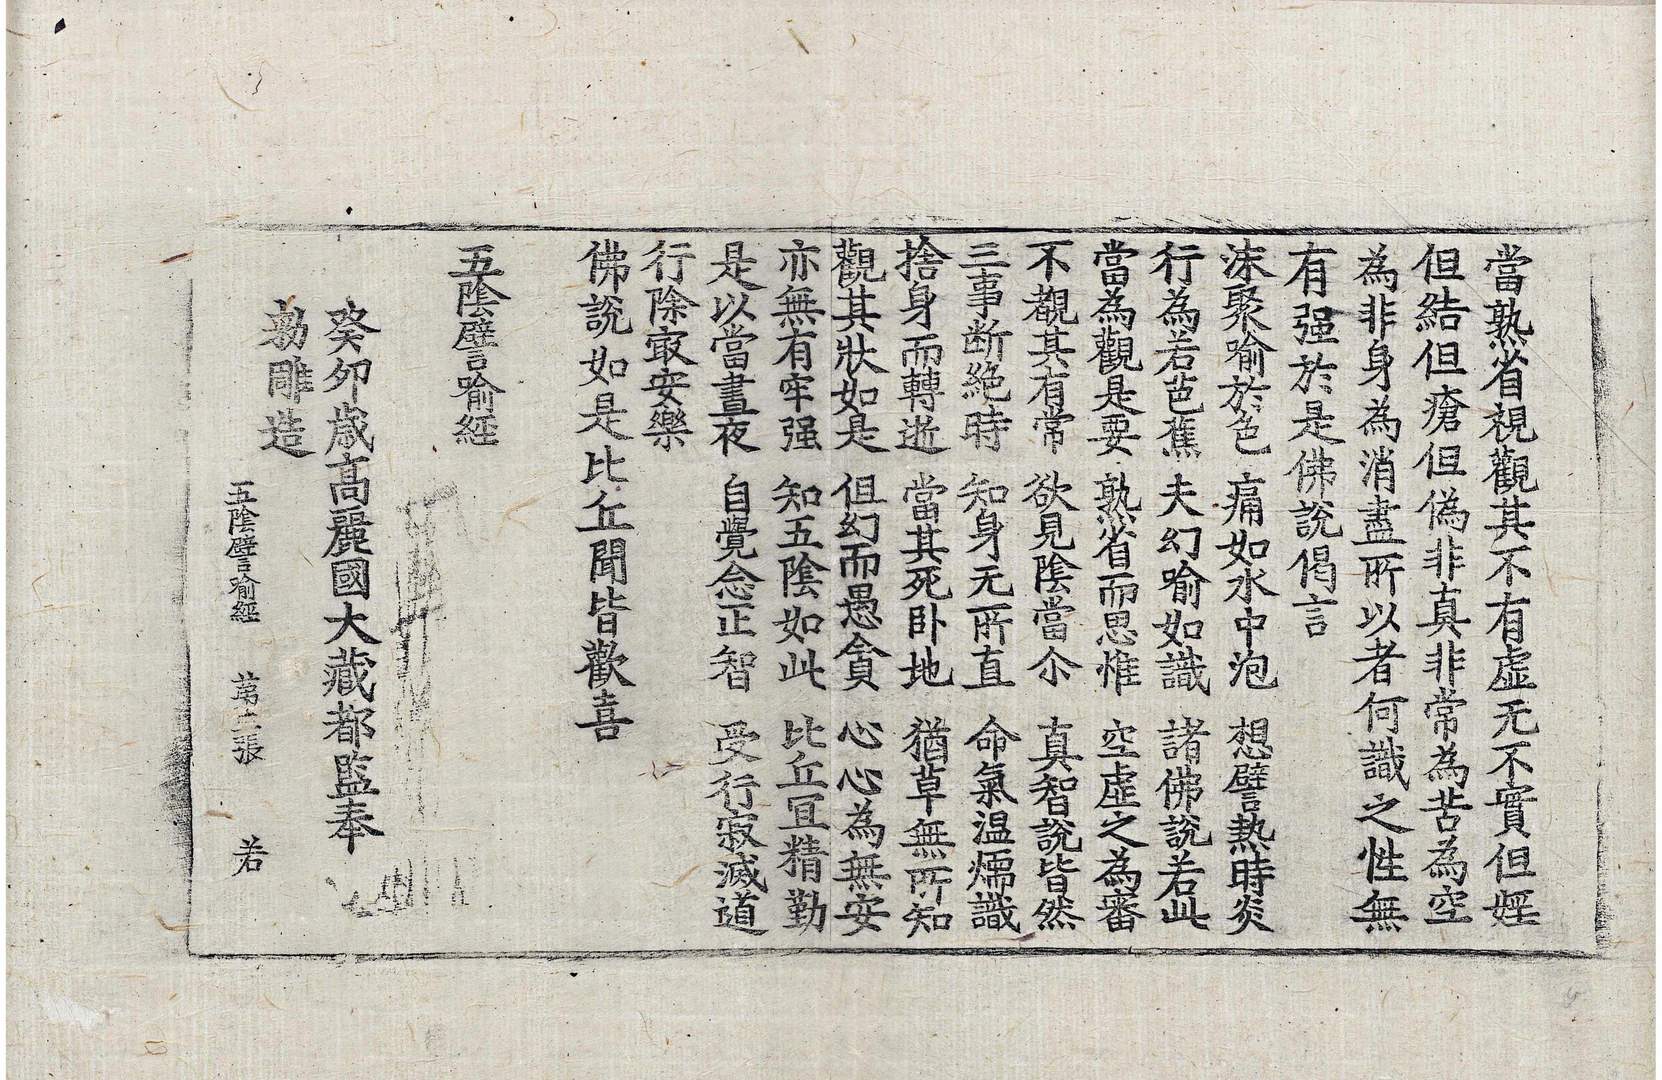 當熟省視觀其不有虛无不實但婬
但結但瘡但偽非真非常為苦為空
為非身為消盡所以者何識之性無
有强於是佛說偈言
沫聚喻於色　痛如水中泡　想譬熱時炎
行為若芭蕉　夫幻喻如識　諸佛說若此
當為觀是要　熟省而思惟　空虛之為審
不觀其有常　欲見陰當尒　真智說皆然
三事断絕時　知身无所直　命氣温燸識
捨身而轉逝　當其死卧地　猶草無所知
觀其狀如是　但幻而愚貪　心心為無安
亦無有牢强　知五陰如此　比丘宜精勤
是以當晝夜　自覺念正智　受行寂滅道
行除㝡安樂
佛說如是比丘聞皆歡喜
五陰譬喻經
癸卯歳高麗國大藏都監奉
勅雕造
五陰譬喻經　苐二張　若